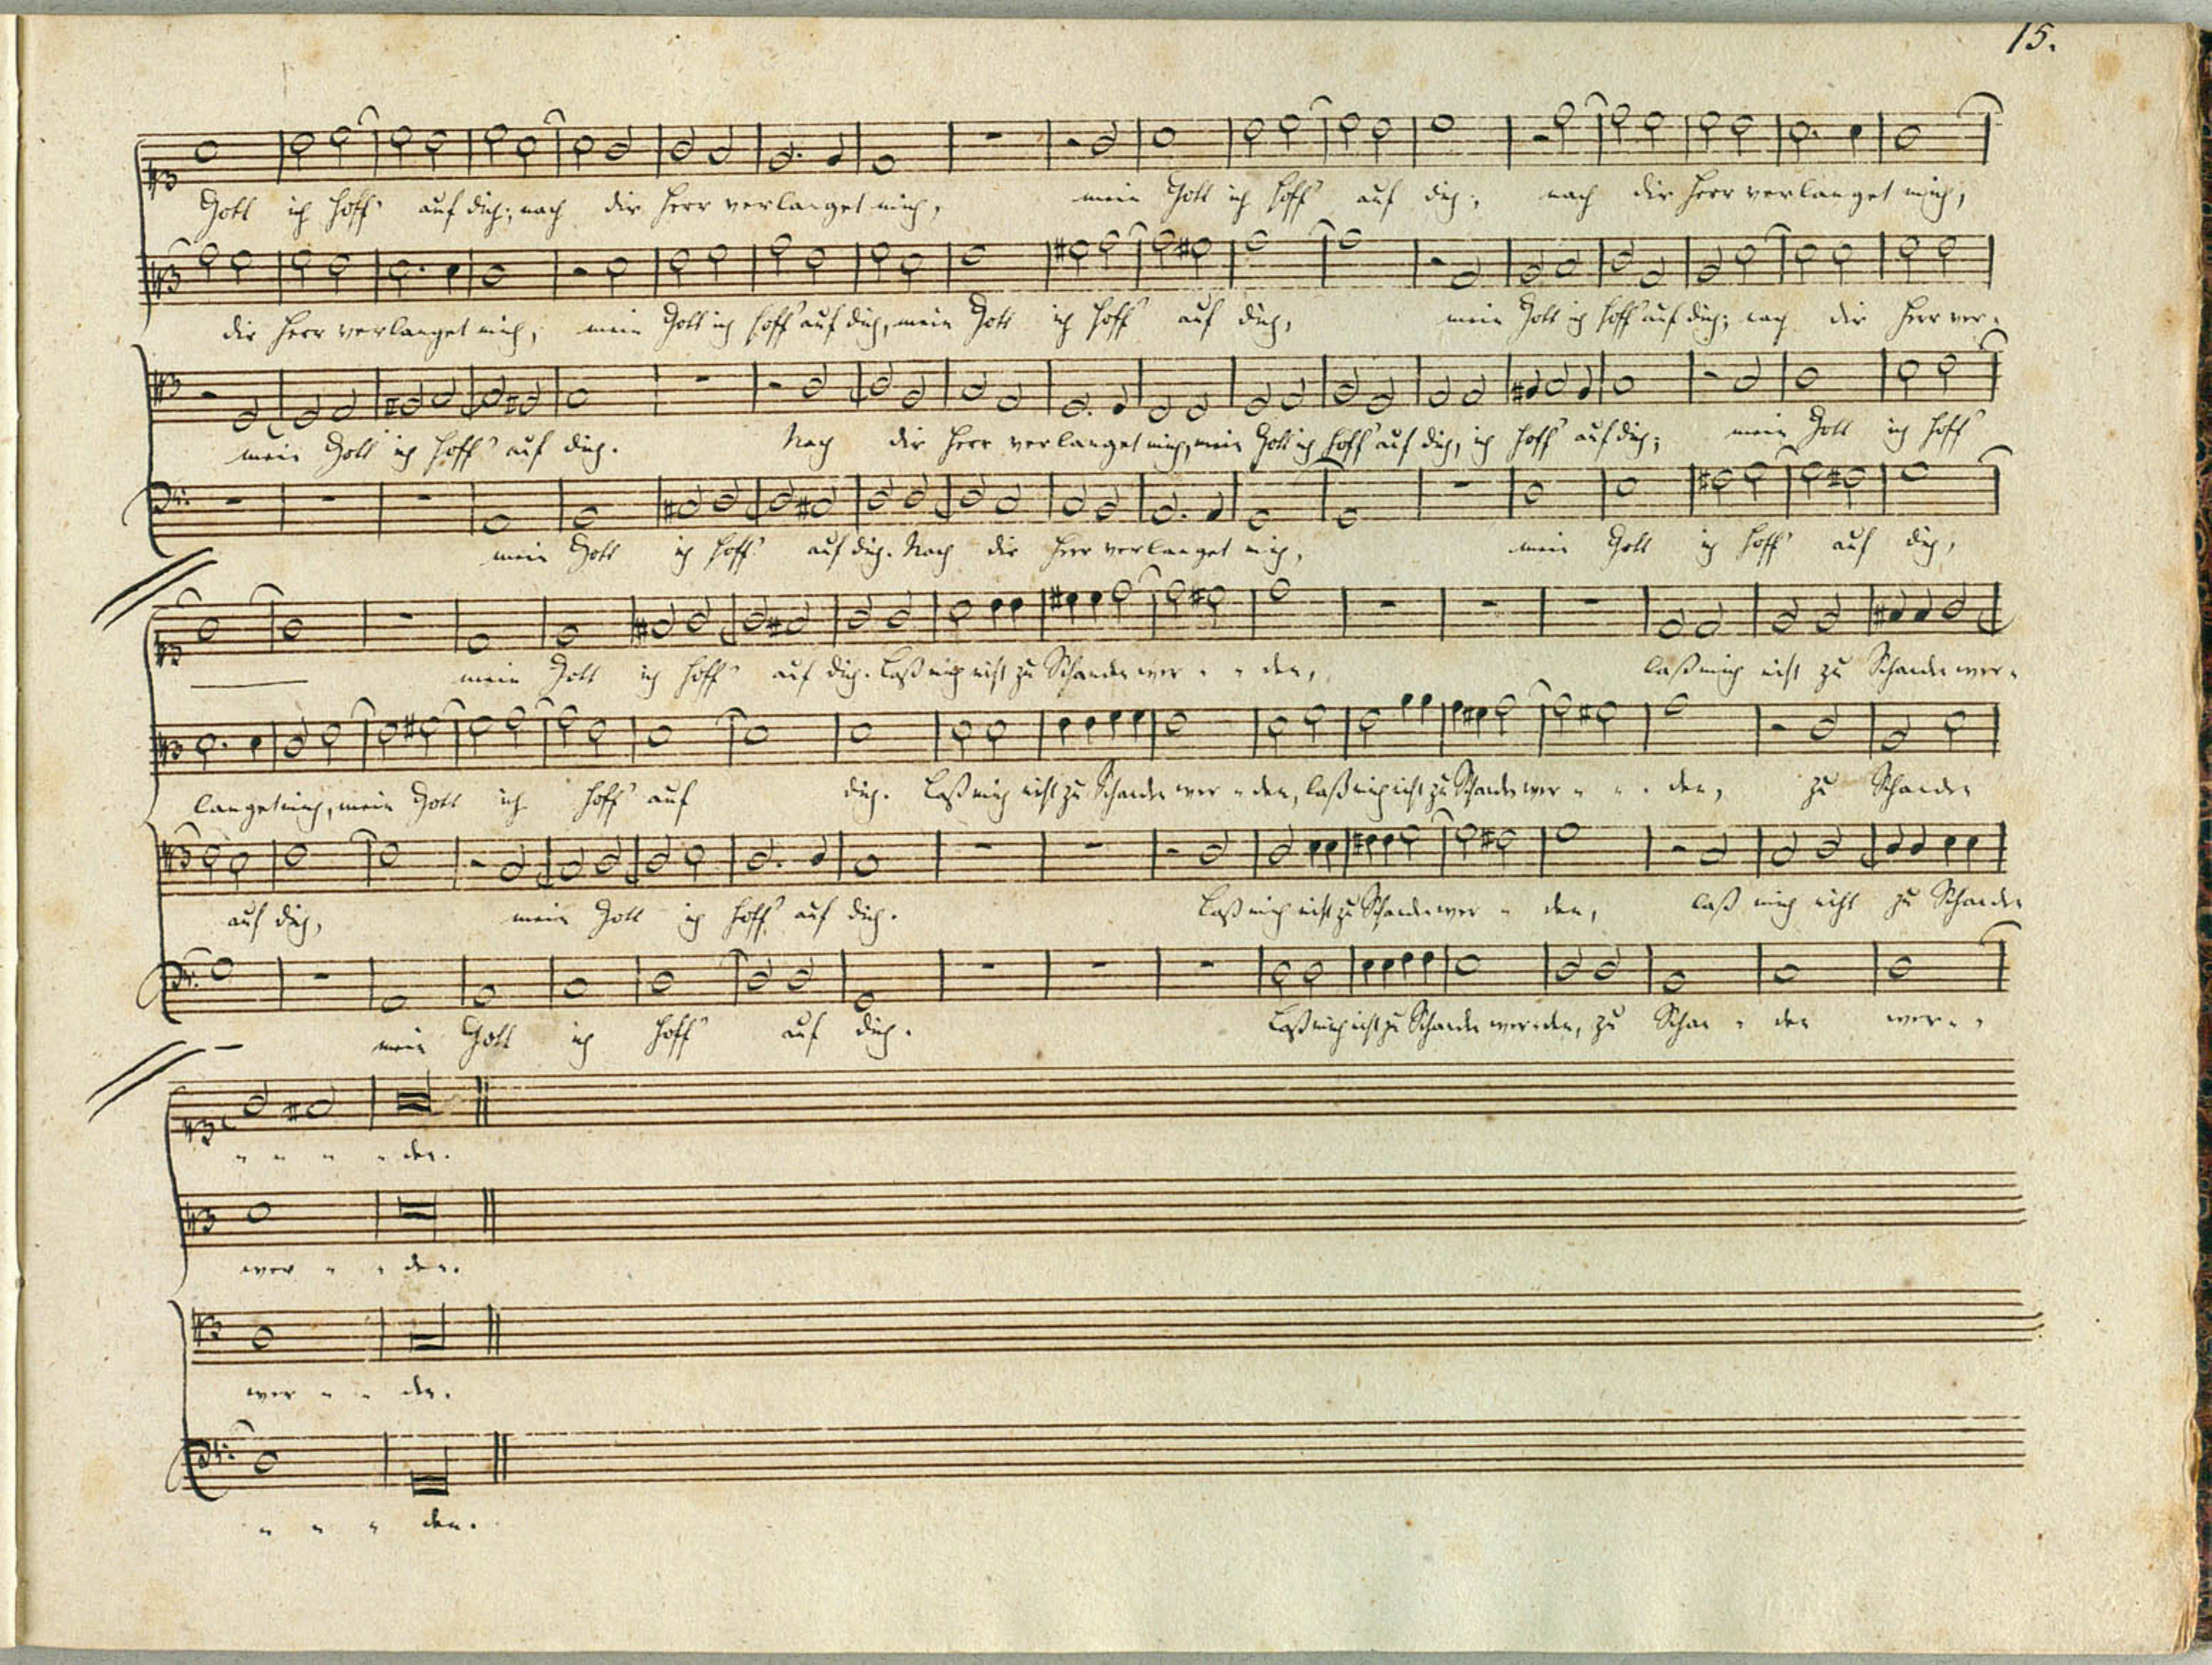 15.
Gott ich hoff' auf dich; nach dir Herr verlanget mich, mein Gott ich hoff' auf dich; nach dir Herr verlanget mich,
dir Herr verlanget mich, mein Gott ich hoff' auf dich, mein Gott ich hoff' auf dich, mein Gott ich hoff' auf dich; nach dir Herr ver-
mein Gott ich hoff' auf dich. Nach dir Herr verlanget mich, mein Gott ich hoff' auf dich, ich hoff' auf dich; mein Gott ich hoff'
mein Gott ich hoff' auf dich. Nach dir Herr verlanget mich, mein Gott ich hoff' auf dich,
mein Gott ich hoff' auf dich. Laß mich nicht zu Schanden wer - - den, laß mich nicht zu Schanden wer-
langet mich, mein Gott ich hoff' auf dich. Laß mich nicht zu Schanden wer - den, laß mich nicht zu Schanden wer - - - den, zu Schanden
auf dich, mein Gott ich hoff' auf dich. Laß mich nicht zu Schanden wer - den, laß mich nicht zu Schanden
mein Gott ich hoff' auf dich. Laß mich nicht zu Schanden werden, zu Schan - den wer - -
- - - - den.
wer - - den.
wer - - den.
- - - den.